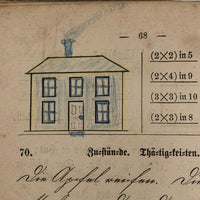 — 68 —
(2×2) in 5
(2×4) in 9
(3×3) in 10
(2×3) in 8
70. Zu=stän=de. Thä=tig=kei=ten.
Die Apfel reifen. Die